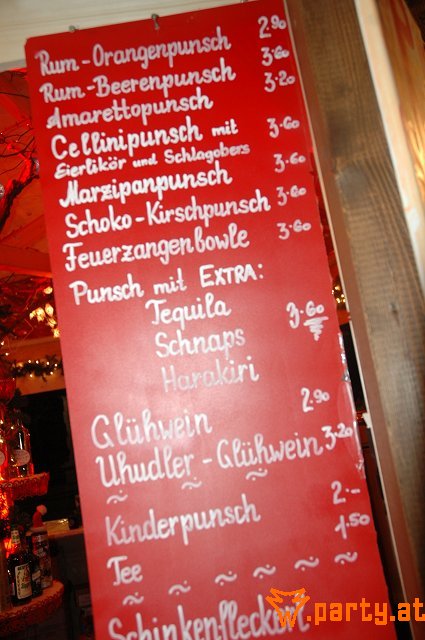 Rum-Orangenpunsch 2.90
Rum-Beerenpunsch 3.60
Amarettopunsch 3.20
Cellinipunsch mit 3.60
Eierlikör und Schlagobers
Marzipanpunsch 3.60
Schoko-Kirschpunsch 3.60
Feuerzangenbowle 3.60
Punsch mit EXTRA:
Tequila 3.60
Schnaps
Harakiri
Glühwein 2.90
Uhudler-Glühwein 3.20
Kinderpunsch 2.--
Tee 1.50
Schinkenfleckerl
.party.at